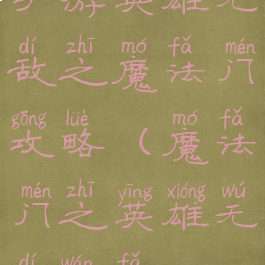 游英雄无
dí zhī mó fǎ mén
敌之魔法门
gōng lüè mó fǎ
攻略（魔法
mén zhī yīng xióng wú
门之英雄无
dí wán fǎ